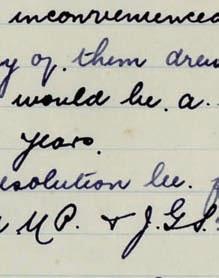 inconvenienced
y of. them drew
would be. a.
years.
esolution be. p
M.P. & J.G.S.